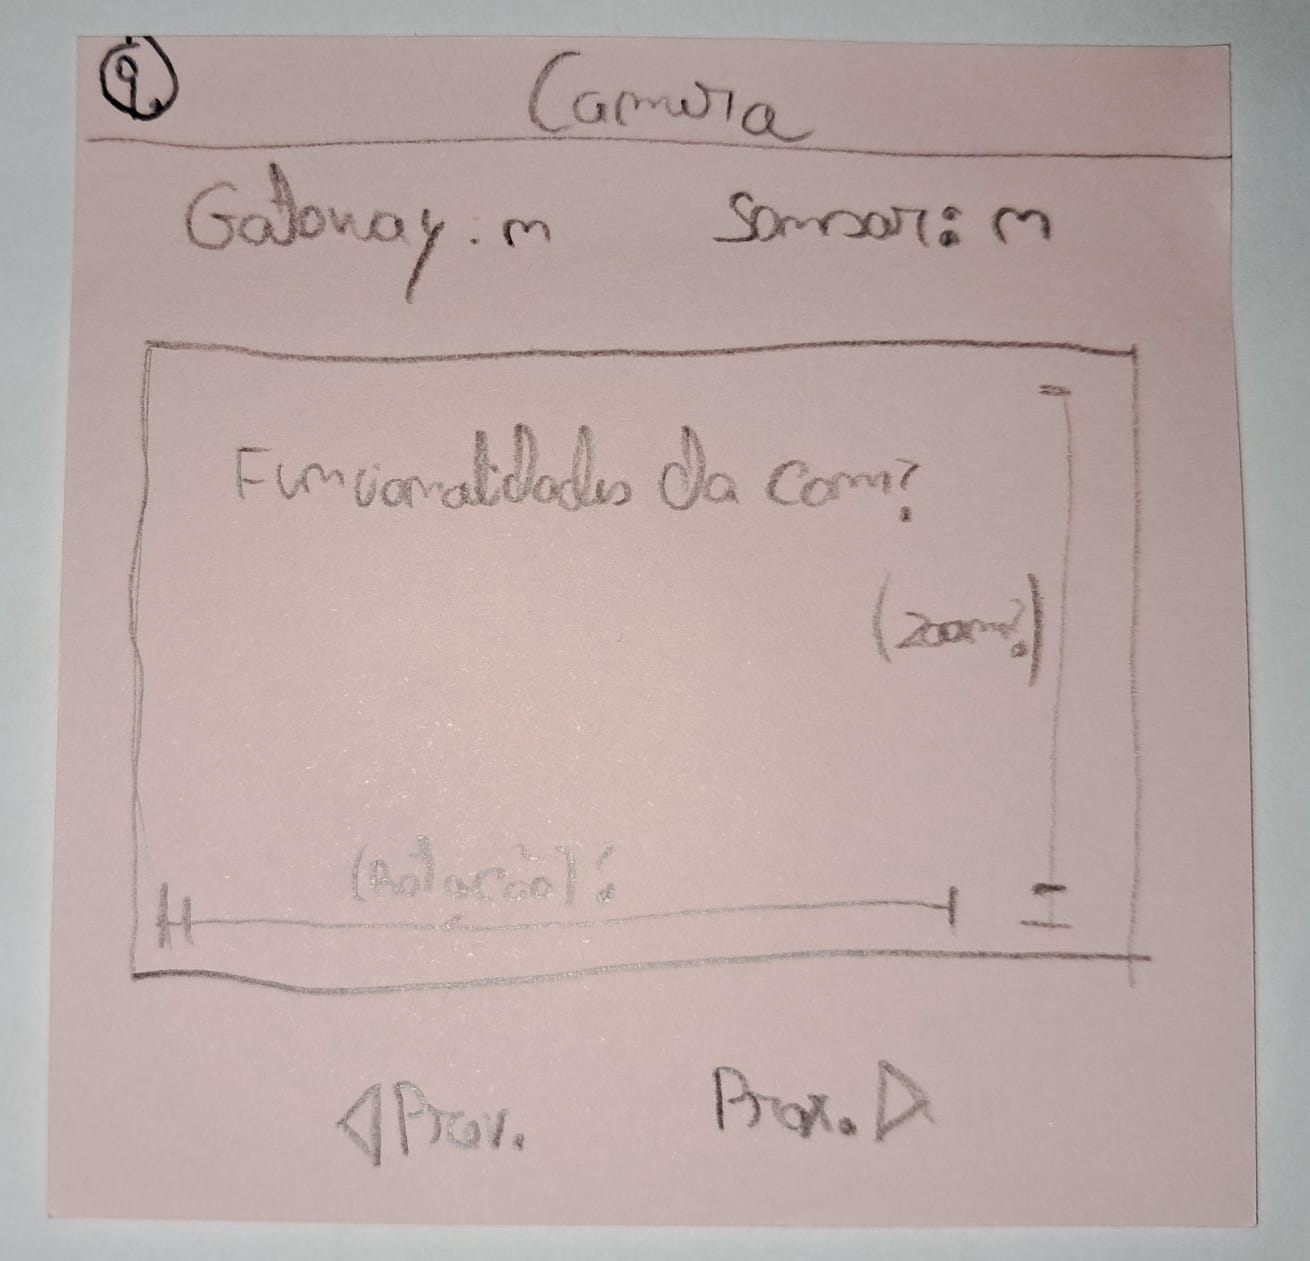 9
Camera
Gateway: m Sensor: m
Funcionalidades da Cam?
(Zoom?)
(Rotação)?
Prev. Prox.